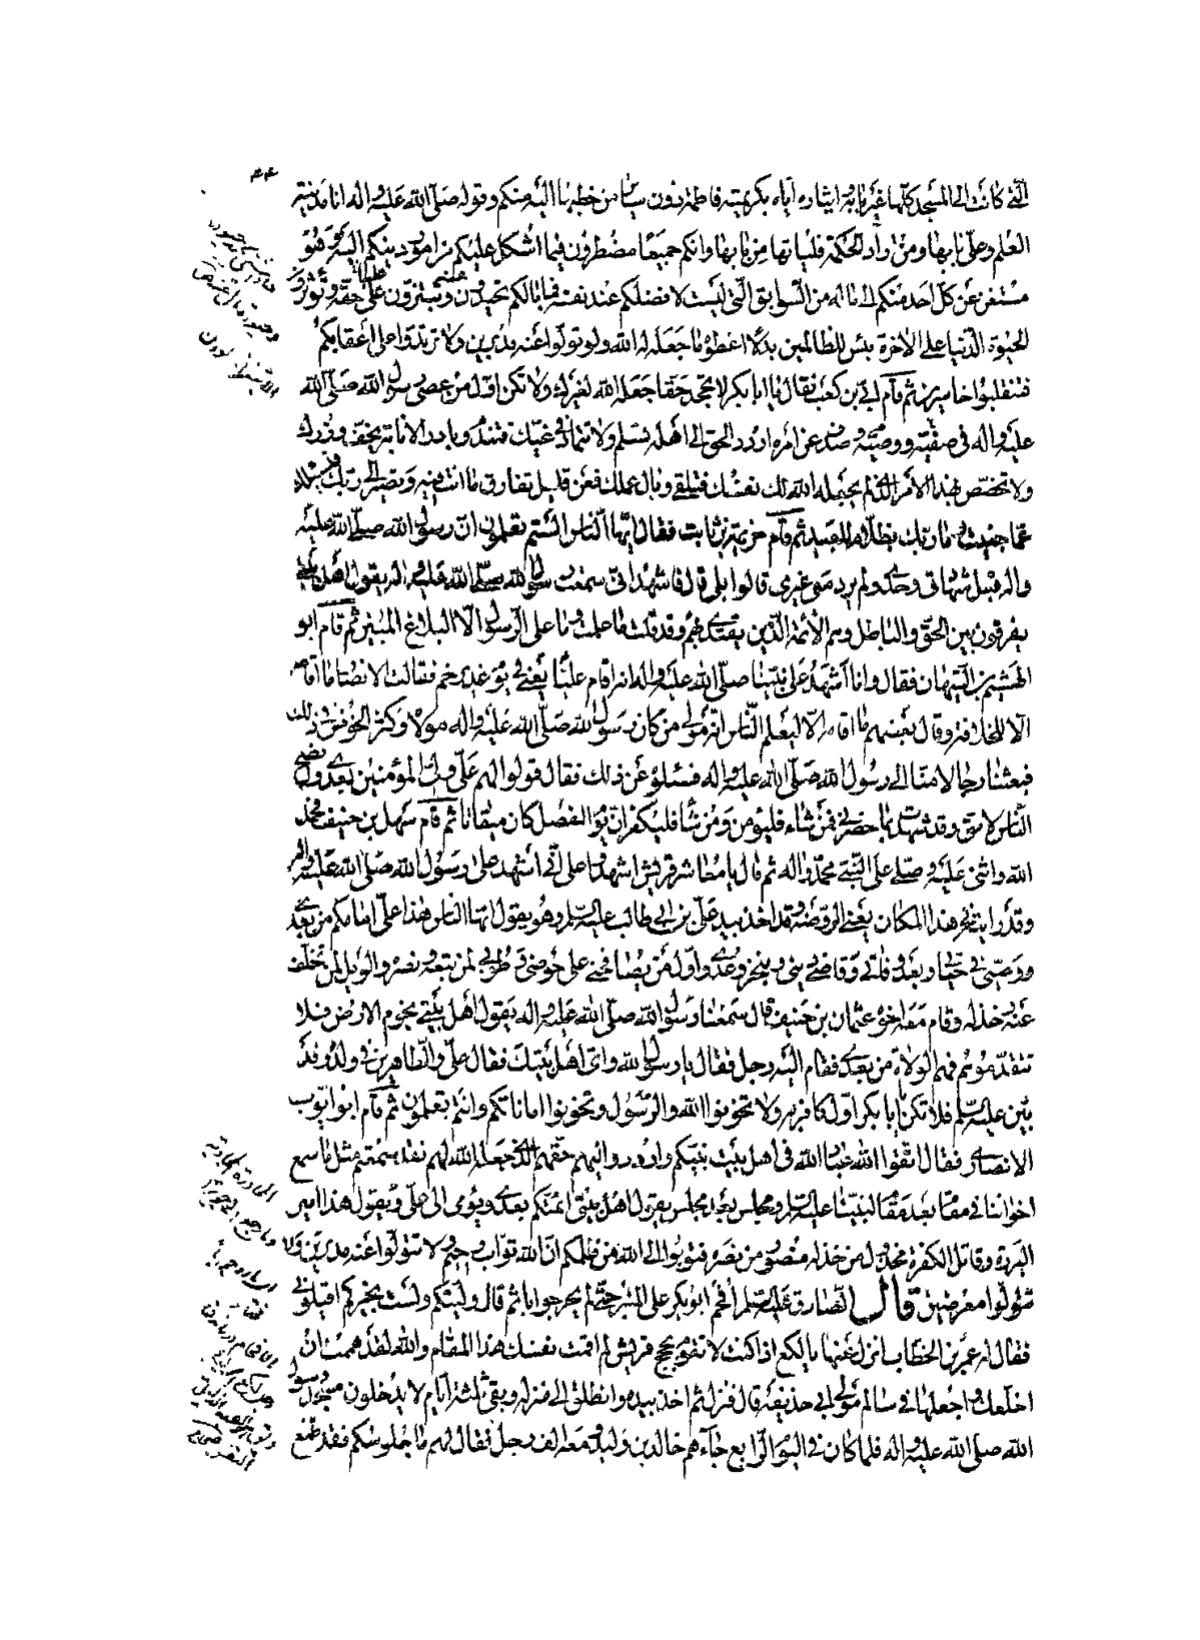 التي كانت الى المسجد كلها غير بابه و ايثاره اياه بكريمته فاطمة دون سائر من خطبها اليه منكم وقوله صلى الله عليه واله انا مدينة
العلم وعلي بابها ومن اراد الحكمة فلياتها من بابها وانكم جميعا مضطرون فيما اشكل عليكم من امور دينكم اليه وهو
مستغن عن كل احد منكم الى ماله من السوابق التي ليست لافضلكم عند نفسه فما بالكم تحيدون عنه وتبتزون عليا حقه وتؤثرون
الحيوة الدنيا على الاخرة بئس للظالمين بدلا اعطوه ما جعله الله ولا تولوا عنه مدبرين ولا ترتدوا على اعقابكم
فتنقلبوا خاسرين ثم قام ابي بن كعب فقال يا ابا بكر لا تجحد حقا جعله الله لغيرك ولا تكن اول من عصى رسول الله صلى الله
عليه واله في صفيه ووصيه وصدف عن امره اردد الحق الى اهله تسلم ولا تتماد في غيك فتندم وبادر الانابة يخف وزرك
ولا تختص بهذا الامر الذي لم يجعله الله لك نفسك فتلقى وبال عملك فعن قليل تفارق ما انت فيه وتصير الى ربك فيسئلك
عما جنيت وما ربك بظلام للعبيد ثم قام خزيمة بن ثابت فقال ايها الناس الستم تعلمون ان رسول الله صلى الله عليه
واله قبل شهادتي وحدي ولم يرد معي غيري قالوا بلى قال فاشهد اني سمعت رسول الله صلى الله عليه واله يقول اهل بيتي
يفرقون بين الحق والباطل وهم الائمة الذين يقتدى بهم وقد قلت ما علمت وما على الرسول الا البلاغ المبين ثم قام ابو
الهيثم بن التيهان فقال وانا اشهد على نبينا صلى الله عليه واله انه اقام عليا يعني في يوم غدير خم فقالت الانصار ما اقامه
الا للخلافة وقال بعضهم ما اقامه الا ليعلم الناس انه مولى من كان رسول الله صلى الله عليه واله مولاه وكثر الخوض في ذلك
فبعثنا رجالا منا الى رسول الله صلى الله عليه واله فسئلوه عن ذلك فقال قولوا لهم علي ولي المؤمنين بعدي وانصح
الناس لامتي وقد شهدت بما حضرني فمن شاء فليؤمن ومن شاء فليكفر ان يوم الفصل كان ميقاتا ثم قام سهل بن حنيف فحمد
الله واثنى عليه وصلى على النبي محمد واله ثم قال يا معاشر قريش اشهدوا على اني اشهد على رسول الله صلى الله عليه واله
وقد رايته في هذا المكان يعني الروضة وقد اخذ بيد علي بن ابي طالب عليه السلم وهو يقول ايها الناس هذا علي امامكم من بعدي
ووصيي في حياتي وبعد وفاتي وقاضي ديني ومنجز وعدي واول من يصافحني على حوضي وطوبى لمن تبعه ونصره والويل لمن تخلف
عنه وخذله وقام معه اخوه عثمان بن حنيف قال سمعنا رسول الله صلى الله عليه واله يقول اهل بيتي نجوم الارض فلا
تتقدموهم فهم الولاة من بعدي فقام اليه رجل فقال يا رسول الله واي اهل بيتك فقال علي والطاهرين من ولده وقد
بين عليه السلم فلا تكن يا ابا بكر اول كافر به ولا تخونوا الله والرسول وتخونوا اماناتكم وانتم تعلمون ثم قام ابو ايوب
الانصاري فقال اتقوا الله عباد الله في اهل بيت نبيكم واردودوا اليهم حقهم الذي جعله الله لهم فقد سمعتم مثل ما سمع
اخواننا في مقام بعد مقام لنبينا عليه السلم ومجلس بعد مجلس يقول اهل بيتي ائمتكم بعدي ويومي الى علي ويقول هذا امير
البررة وقاتل الكفرة مخذول من خذله منصور من نصره فتوبوا الى الله من ظلمكم ان الله تواب رحيم ولا تتولوا عنه مدبرين ولا
تتولوا معرضين قال الصادق عليه السلم فافحم ابو بكر على المنبر حتى لم يحر جوابا ثم قال وليتكم ولست بخيركم اقيلوني
فقال له عمر بن الخطاب انزل عنها يا لكع اذا كنت لا تقوم بحجج قريش لم اقمت نفسك هذا المقام والله لقد هممت ان
اخلعك واجعلها في سالم مولى ابي حذيفة قال فنزل ثم اخذ بيده وانطلق الى منزله وبقي ثلثة ايام لا يدخلون مسجد رسول
الله صلى الله عليه واله فلما كان في اليوم الرابع جاءهم خالد بن وليد ومعه الف رجل فقال لهم ما جلوسكم فقد طمع